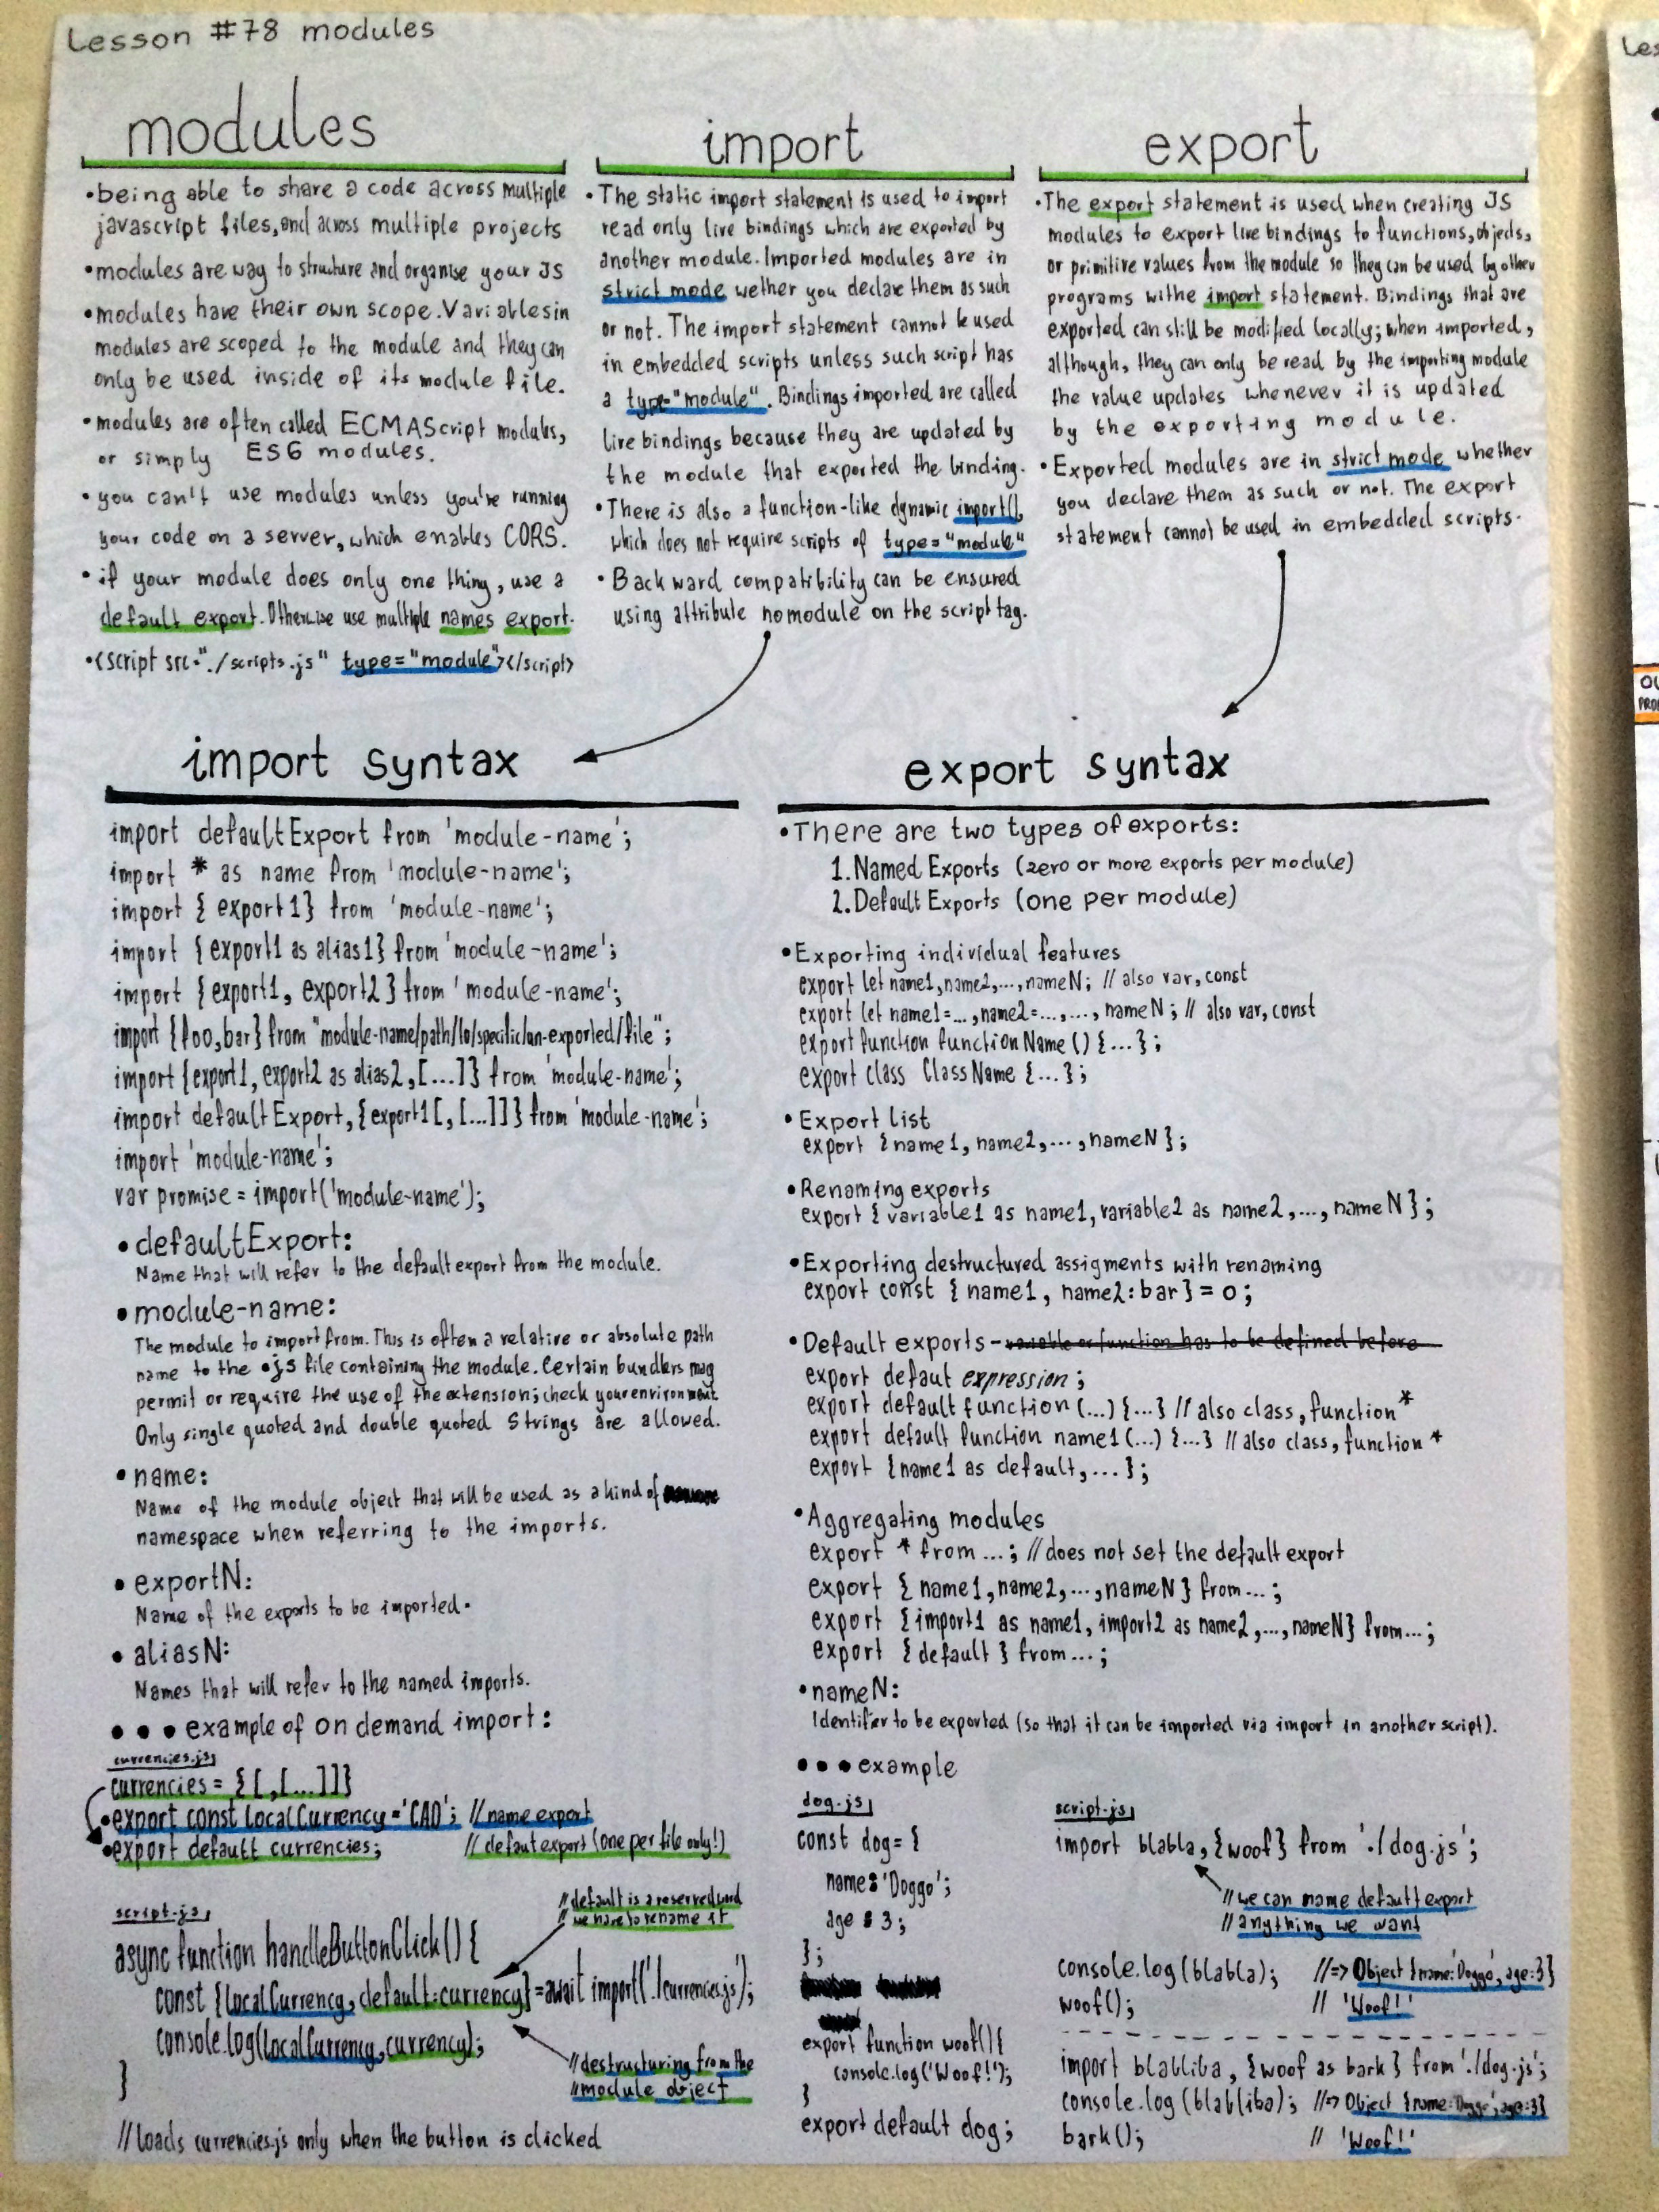 Lesson #78 modules
modules
•being able to share a code across multiple
javascript files,and across multiple projects
•modules are way to structure and organise your JS
•modules have their own scope. Variables in
modules are scoped to the module and they can
only be used inside of its module file.
•modules are often called ECMAScript modules,
or simply ES6 modules.
• you can't use modules unless you're running
your code on a server, which enables CORS.
• if your module does only one thing, use a
default export. Otherwise use multiple names export.
•<script src="./scripts.js" type="module"></script>
import
• The static import statement is used to import
read only live bindings which are exported by
another module. Imported modules are in
strict mode wether you declare them as such
or not. The import statement cannot be used
in embedded scripts unless such script has
a type="module". Bindings imported are called
live bindings because they are updated by
the module that exported the binding.
• There is also a function-like dynamic import(),
which does not require scripts of type="module"
• Backward compatibility can be ensured
using attribute nomodule on the script tag.
export
•The export statement is used when creating JS
modules to export live bindings to functions, objects,
or primitive values from the module so they can be used by other
programs withe import statement. Bindings that are
exported can still be modified locally; when imported,
although, they can only be read by the importing module
the value updates whenever it is updated
by the exporting module.
• Exported modules are in strict mode whether
you declare them as such or not. The export
statement cannot be used in embedded scripts.
import syntax
import defaultExport from 'module-name';
import * as name from 'module-name';
import { export1} from 'module-name';
import {export1 as alias1} from 'module-name';
import {export1, export2} from 'module-name';
import {foo,bar} from "module-name/path/to/specific/un-exported/file";
import {export1, export2 as alias2,[...]} from 'module-name';
import defaultExport, {export1[,[...]]} from 'module-name';
import 'module-name';
var promise = import('module-name');
• defaultExport:
Name that will refer to the default export from the module.
• module-name:
The module to import from. This is often a relative or absolute path
name to the .js file containing the module. Certain bundlers may
permit or require the use of the extension; check your environment.
Only single quoted and double quoted Strings are allowed.
• name:
Name of the module object that will be used as a kind of
namespace when referring to the imports.
• exportN:
Name of the exports to be imported.
• aliasN:
Names that will refer to the named imports.
• • • example of on demand import:
currencies.js
currencies = {[,[...]]}
•export const localCurrency='CAD'; //name export
•export default currencies; // defaut export (one per file only!)
script.js
// default is a reserved word
// we have to rename it
async function handleButtonClick() {
const {localCurrency, default:currency}=await import('./currencies.js');
console.log(localCurrency,currency);
//destructuring from the
//module object
}
//loads currencies.js only when the button is clicked
export syntax
•There are two types of exports:
1.Named Exports (zero or more exports per module)
2.Default Exports (one per module)
•Exporting individual features
export let name1,name2,...,nameN; // also var, const
export let name1=...,name2=...,...,nameN; // also var, const
export function functionName () {...};
export class ClassName {...};
• Export list
export {name1, name2,...,nameN};
•Renaming exports
export {variable1 as name1, variable2 as name2,..., nameN};
•Exporting destructured assigments with renaming
export const {name1, name2:bar} = o;
•Default exports - variable or function has to be defined before
export defaut expression;
export default function (...) {...} // also class, function*
export default function name1 (...) {...} // also class, function*
export {name1 as default,...};
•Aggregating modules
export * from ...; // does not set the default export
export {name1,name2,...,nameN} from...;
export {import1 as name1, import2 as name2,..., nameN} from...;
export {default} from...;
•nameN:
Identifer to be exported (so that it can be imported via import in another script).
• • • example
dog.js
const dog= {
name: 'Doggo';
age : 3;
};
export function woof(){
console.log('Woof!');
}
export default dog;
script.js
import blabla, {woof} from './dog.js';
//we can name default export
//anything we want
console.log(blabla); //=> Object {name:'Doggo', age:3}
woof(); // 'Woof!'
import blabliba, {woof as bark} from './dog.js';
console.log(blabliba); //=> Object {name:'Doggo', age:3}
bark(); // 'Woof!'
Les
OU
PRO